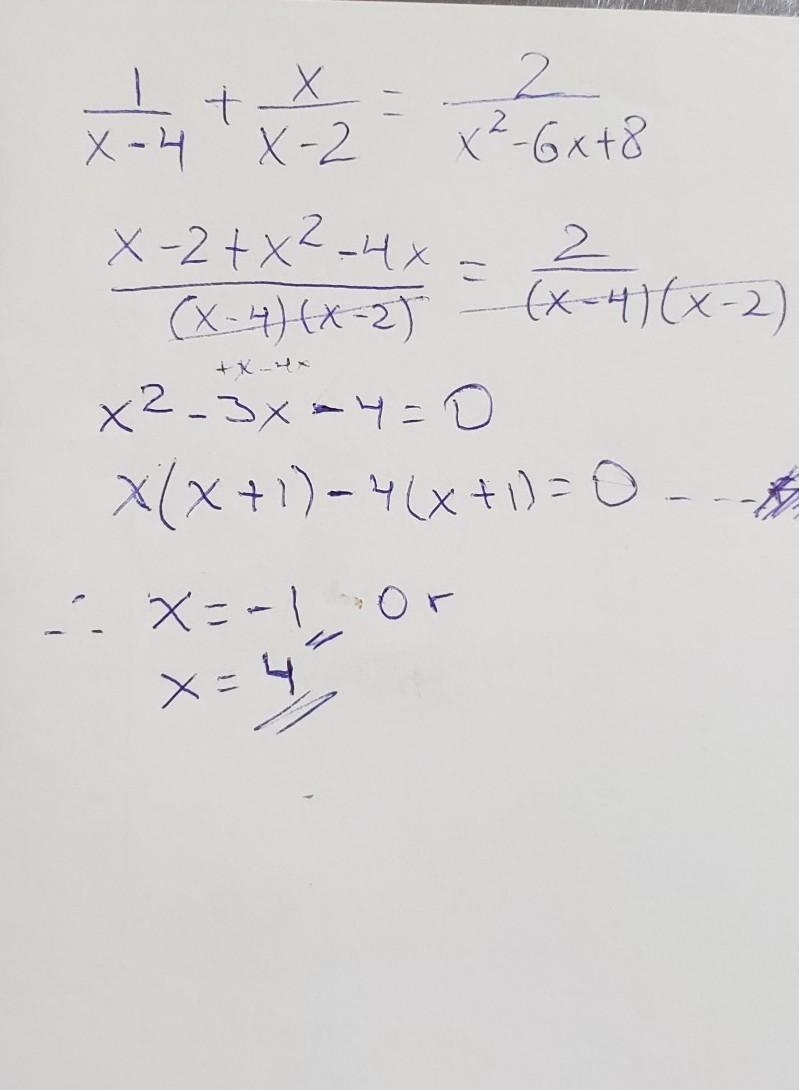 1/(x-4) + x/(x-2) = 2/(x²-6x+8)
(x-2+x²-4x)/((x-4)(x-2)) = 2/((x-4)(x-2))
+x-4x
x²-3x-4=0
x(x+1)-4(x+1)=0 ---
∴ x=-1 or
x=4